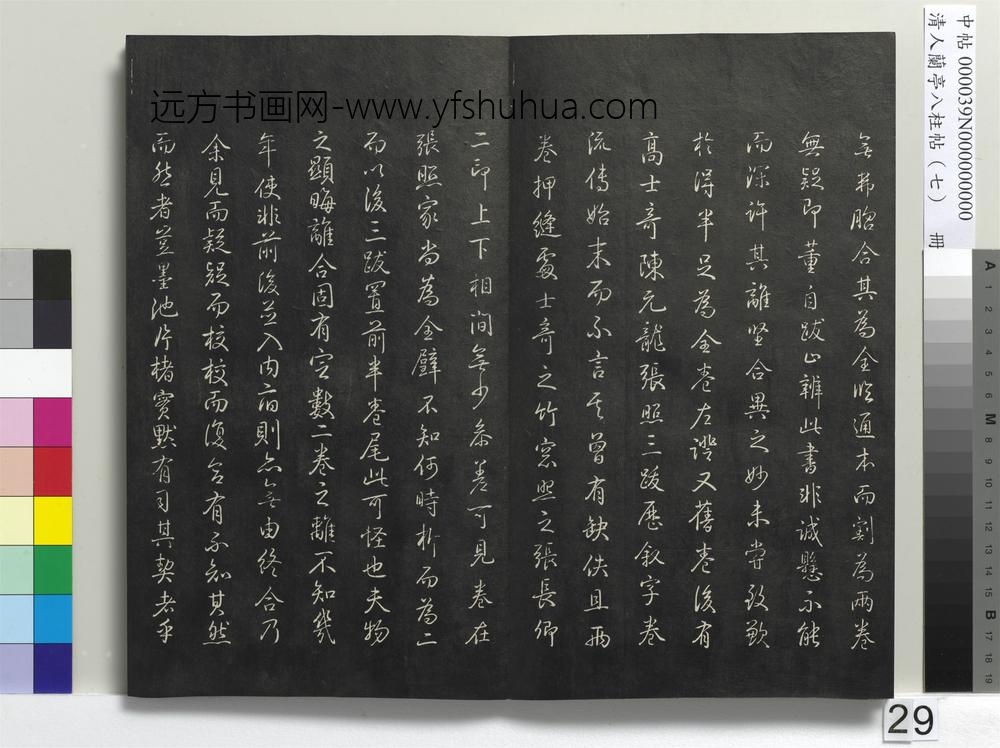 无弗脗合其為全順通本而割為兩卷
無疑即董自跋止辨此書非誠懸不能
而深許其離堅合異之妙未嘗致歎
於得半足為全卷左證又舊卷後有
高士奇陳元龍張照三跋歷叙字卷
流傳始末而不言其曾有缺佚且兩
卷押縫處士奇之竹窓照之張長卿
二印上下相間無少參差可見卷在
張照家尚為全璧不知何時析而為二
而以後三跋置前半卷尾此可怪也夫物
之顯晦離合固有定數二卷之離不知幾
年使非前後並入內府則亦無由終合乃
余見而疑疑而校校而復合有不知其然
而然者豈墨池片楮實默有司其契者乎
远方书画网-www.yfshuhua.com
中帖 000039N000000000
清人蘭亭八柱帖（七） 冊
29
A 1 2 3 4 5 6 M 8 9 10 11 12 13 14 15 B 17 18 19